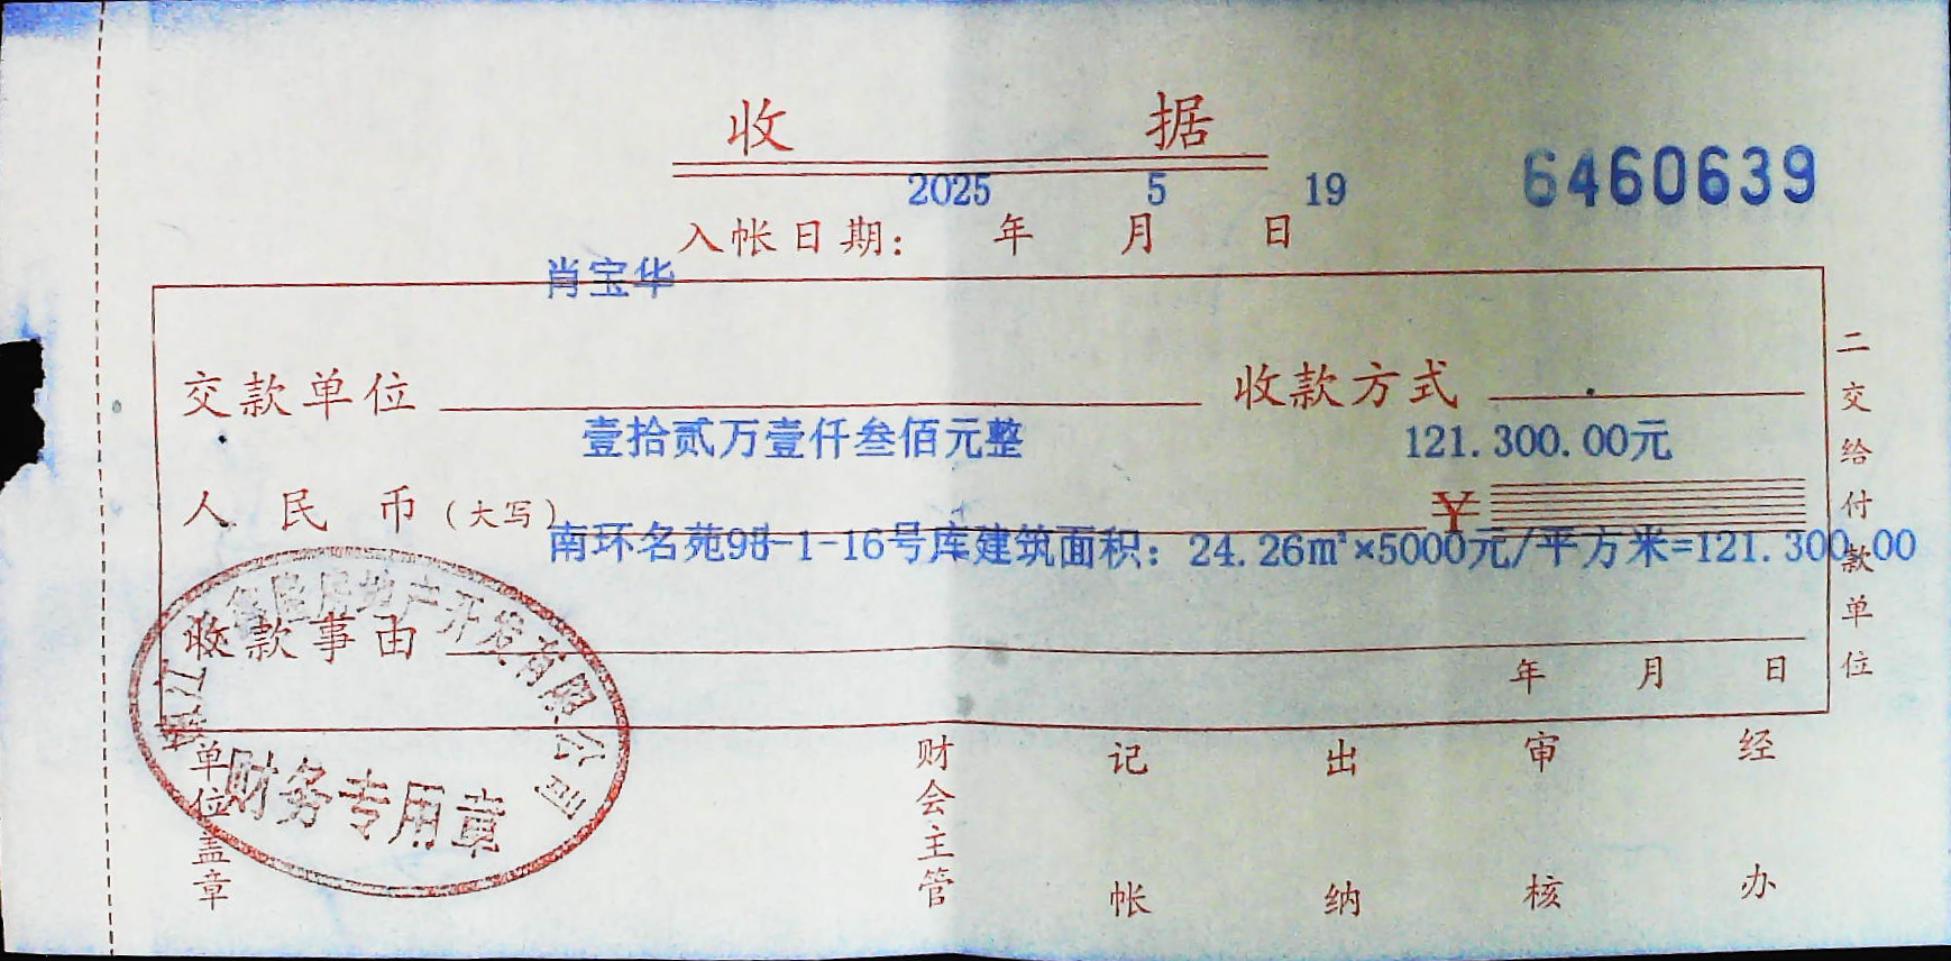 收 据
6460639
2025 5 19
入帐日期: 年 月 日
肖宝华
交款单位 收款方式
壹拾贰万壹仟叁佰元整 121.300.00元
人民币(大写) ¥
南环名苑 -1-16号库建筑面积: 24.26m²×5000元/平方米=121.300.00
收款事由
年 月 日
二交给付款单位
房地产开发有限公司
财务专用章
单位盖章
财会主管 记帐 出纳 审核 经办